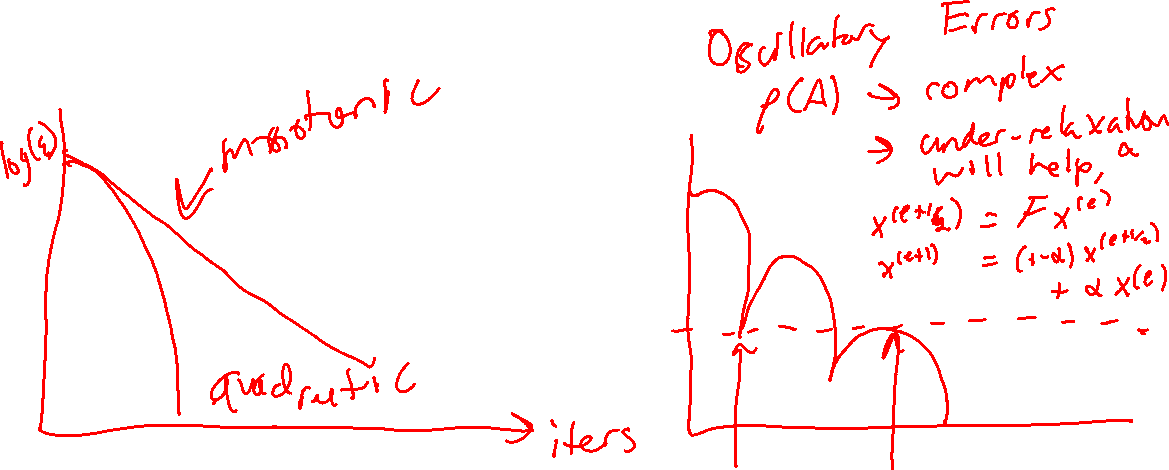 log(ε)
monotonic
quadratic
iters
Oscillatory Errors
ρ(A) → complex
→ under-relaxation
will help, α
x^(ℓ+1/2) = F x^(ℓ)
x^(ℓ+1) = (1-α) x^(ℓ+1/2)
+ α x^(ℓ)